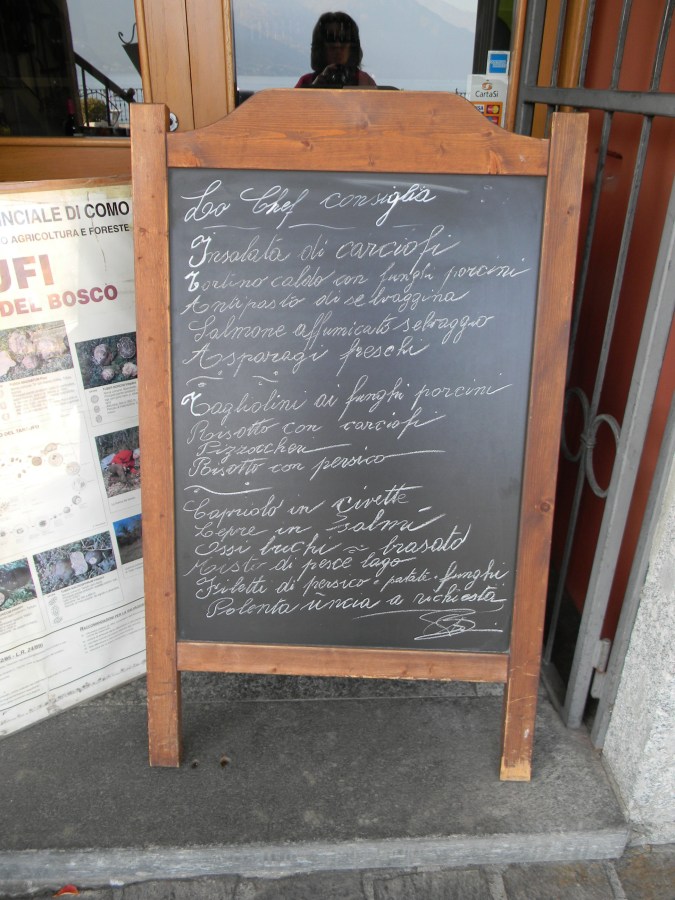 Lo Chef consiglia
Insalata di carciofi
Tortino caldo con funghi porcini
Antipasto di selvaggina
Salmone affumicato selvaggio
Asparagi freschi
Tagliolini ai funghi porcini
Risotto con carciofi
Pizzoccheri
Risotto con persico
Capriolo in civette
Lepre in salmì
Ossi buchi = brasato
Misto di pesce lago
Filetti di persico + patate + funghi
Polenta uncia a richiesta
CartaSi
NCIALE DI COMO
O AGRICOLTURA E FORESTE
UFI
DEL BOSCO